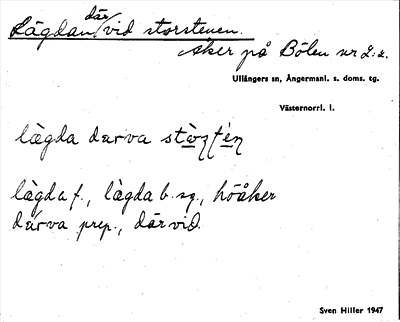 där
Lägdan / vid storstenen.
Åker på Bölen nr 2:
Ullångers sn, Ångermanl. s. doms. tg.
Västernorrl. l.
làgda darva
làgda f., làgda b. sg., höåker
därva prep., där vid.
Sven Hiller 1947